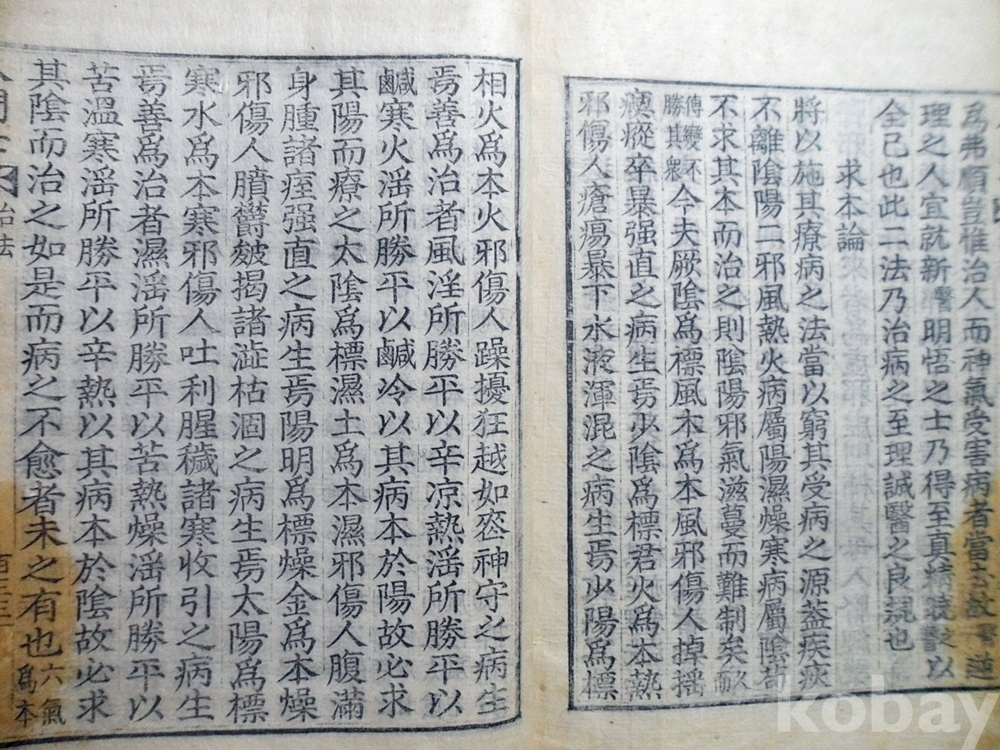 爲弗順豈惟治人而神氣受害病者當去故逆
理之人宜就新醫明悟之士乃得至真精以
全己也此二法乃治病之至理誠醫之良也
求本論
將以施其療病之法當以窮其受病之源蓋疾疢
不離陰陽二邪風熱火病屬陽濕燥寒病屬陰苟
不求其本而治之則陰陽邪氣滋蔓而難制矣
傳變不勝其衆今夫厥陰爲標風木爲本風邪傷人掉搖
瘈瘲卒暴强直之病生焉少陰爲標君火爲本熱
邪傷人瘡瘍暴下水液渾混之病生焉少陽爲標
相火爲本火邪傷人躁擾狂越如喪神守之病生
焉善爲治者風淫所勝平以辛凉熱淫所勝平以
鹹寒火淫所勝平以鹹冷以其病本於陽故必求
其陽而療之太陰爲標濕土爲本濕邪傷人腹滿
身腫諸痓强直之病生焉陽明爲標燥金爲本燥
邪傷人膹鬱皴揭諸澁枯涸之病生焉太陽爲標
寒水爲本寒邪傷人吐利腥穢諸寒收引之病生
焉善爲治者濕淫所勝平以苦熱燥淫所勝平以
苦溫寒淫所勝平以辛熱以其病本於陰故必求
其陰而治之如是而病之不愈者未之有也六氣爲本
治法
kobay